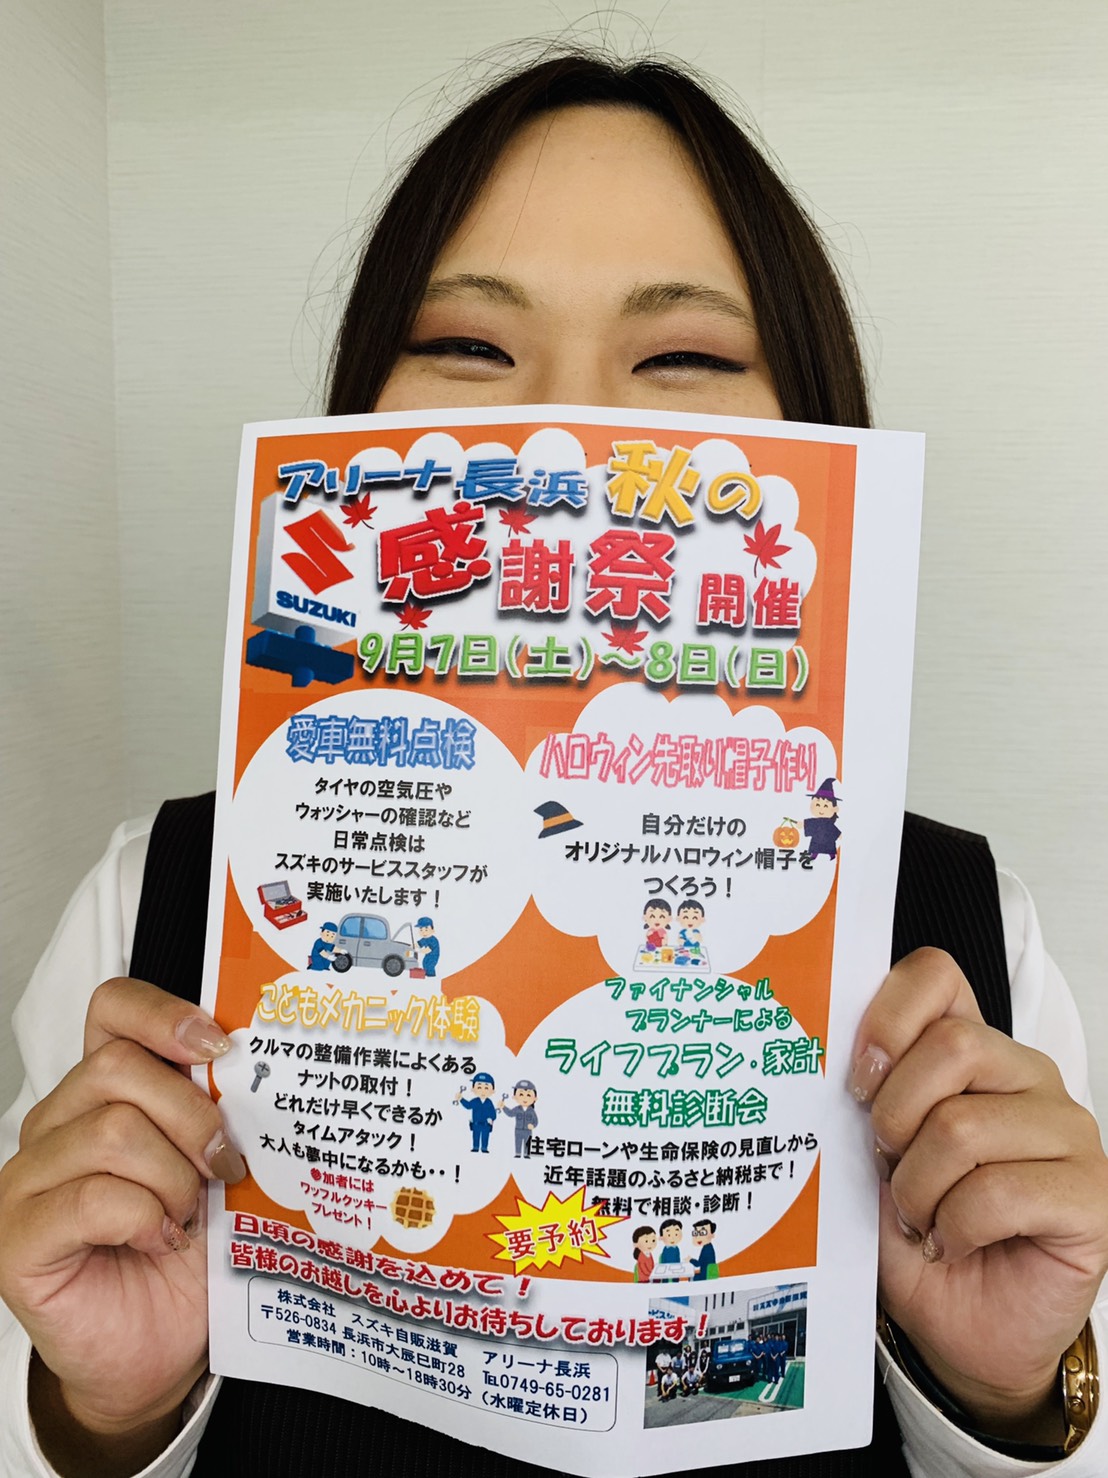 アリーナ長浜 秋の
感謝祭 開催
SUZUKI
9月7日(土)～8日(日)
愛車無料点検
タイヤの空気圧や
ウォッシャーの確認など
日常点検は
スズキのサービススタッフが
実施いたします！
ハロウィン先取り帽子作り
自分だけの
オリジナルハロウィン帽子を
つくろう！
こどもメカニック体験
クルマの整備作業によくある
ナットの取付！
どれだけ早くできるか
タイムアタック！
大人も夢中になるかも・・！
参加者には
ワッフルクッキー
プレゼント！
ファイナンシャル
プランナーによる
ライフプラン・家計
無料診断会
住宅ローンや生命保険の見直しから
近年話題のふるさと納税まで！
無料で相談・診断！
要予約
日頃の感謝を込めて！
皆様のお越しを心よりお待ちしております！
株式会社 スズキ自販滋賀 アリーナ長浜
〒526-0834 長浜市大辰巳町28 ℡0749-65-0281
営業時間：10時～18時30分 (水曜定休日)